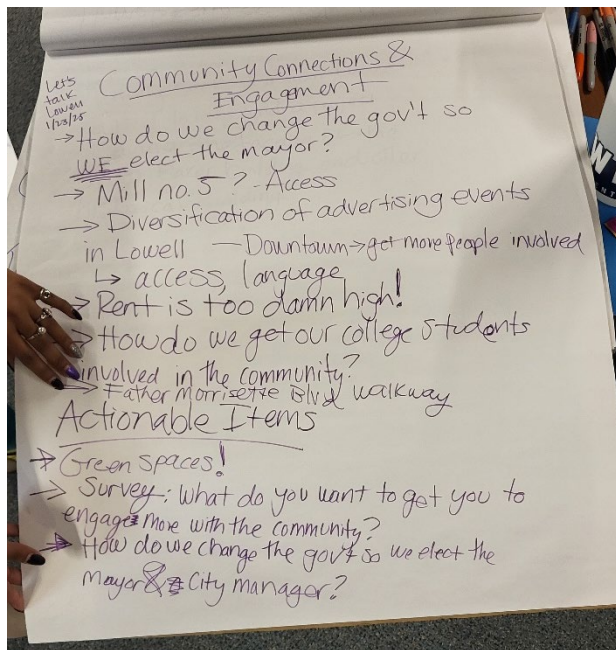 Let's
talk
Lowell
1/23/25
Community Connections &
Engagement
→ How do we change the gov't so
WE elect the mayor?
→ Mill no. 5? - Access
→ Diversification of advertising events
in Lowell — Downtown → get more people involved
↳ access, language
→ Rent is too damn high!
→ How do we get our college students
involved in the community?
→ Father Morrisette Blvd walkway
Actionable Items
→ Green spaces!
→ Survey: What do you want to get you to
engage more with the community?
→ How do we change the gov't so we elect the
Mayor & City manager?